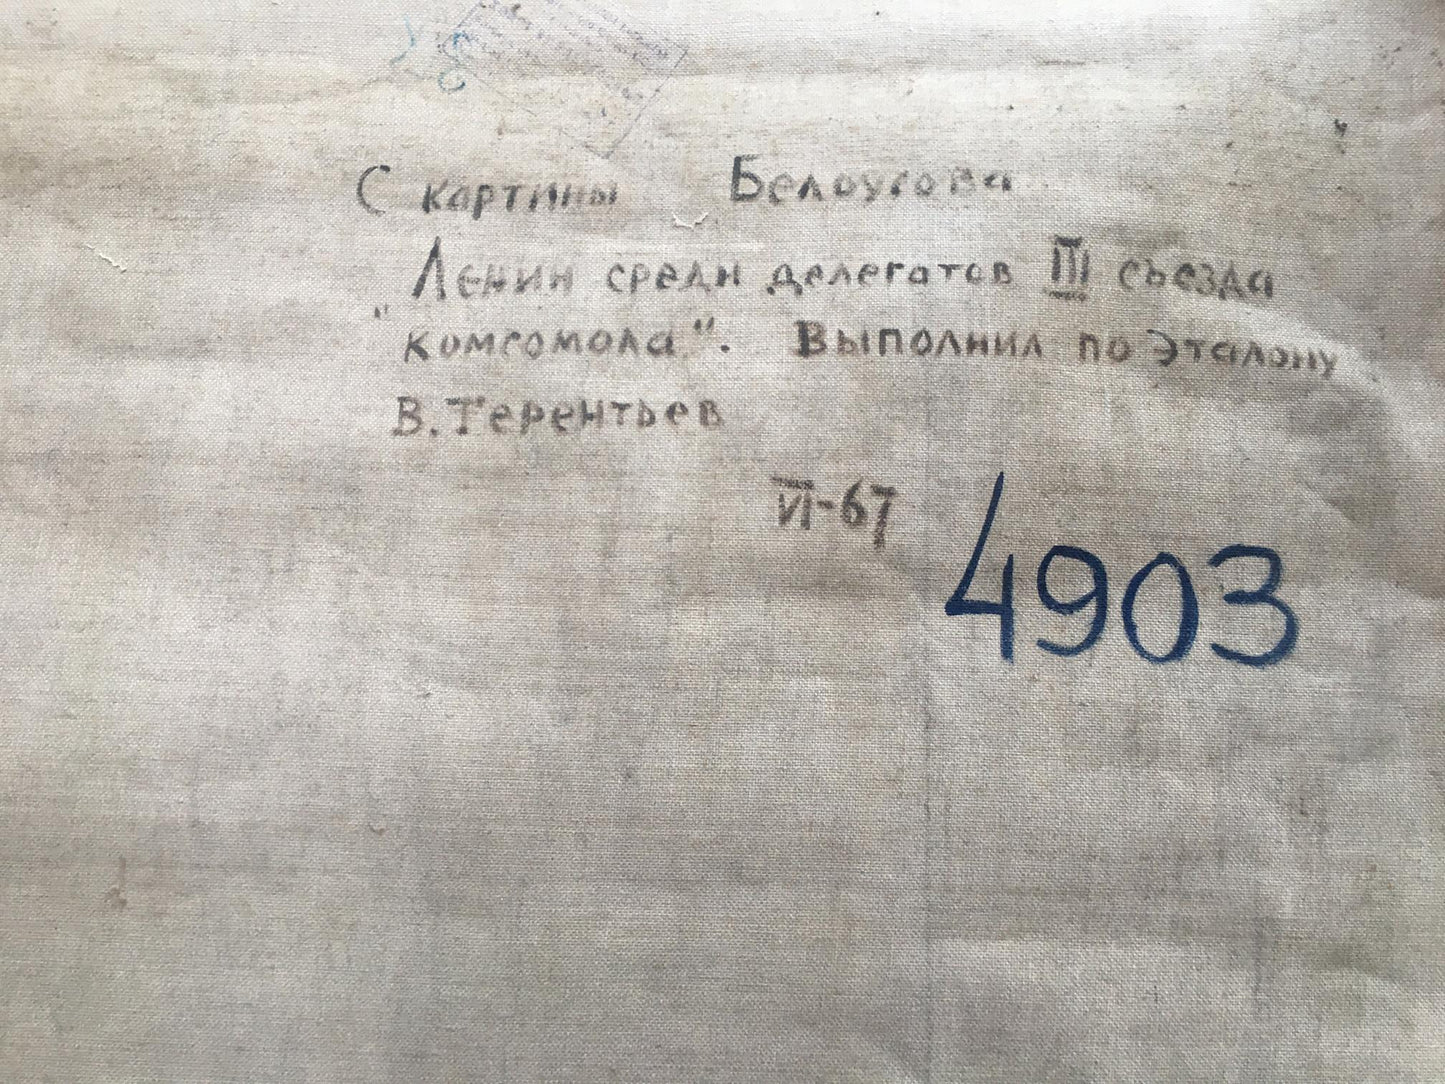 С картины Белоусова
"Ленин среди делегатов III съезда
комсомола". Выполнил по эталону
В. Терентьев
VI-67
4903